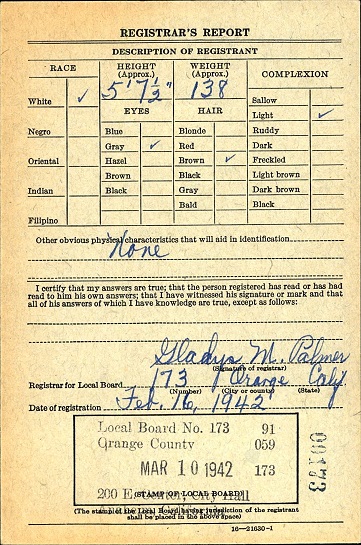 REGISTRAR'S REPORT
DESCRIPTION OF REGISTRANT
RACE HEIGHT (Approx.) WEIGHT (Approx.) COMPLEXION
5' 7½" 138
White ✓ Sallow
EYES HAIR Light ✓
Negro Blue Blonde Ruddy
Gray ✓ Red Dark
Oriental Hazel Brown ✓ Freckled
Brown Black Light brown
Indian Black Gray Dark brown
Bald Black
Filipino
Other obvious physical characteristics that will aid in identification
None
I certify that my answers are true; that the person registered has read or has had
read to him his own answers; that I have witnessed his signature or mark and that
all of his answers of which I have knowledge are true, except as follows:
Gladys M. Palmer
(Signature of registrar)
Registrar for Local Board 173 Orange Calif.
(Number) (City or county) (State)
Date of registration Feb. 16, 1942
Local Board No. 173 91
Orange County 059
MAR 10 1942 173
00173
City Hall
(STAMP OF LOCAL BOARD)
(The stamp of the Local Board having jurisdiction of the registrant
shall be placed in the above space)
16—21630-1